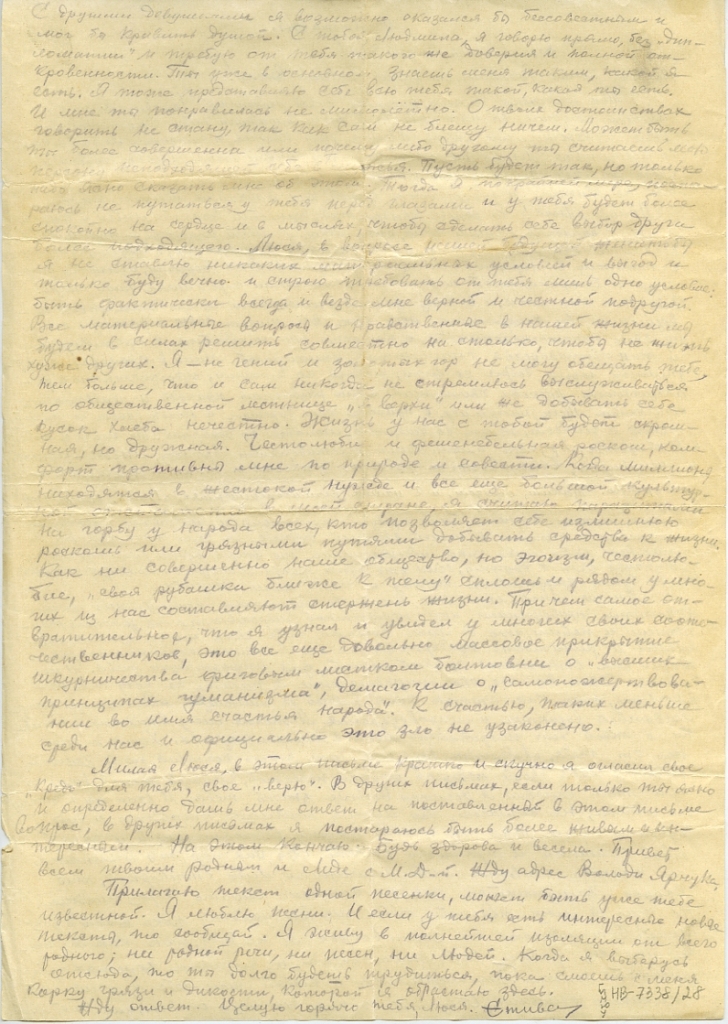 С другими девушками я возможно оказался бы бессовестным и
мог бы кривить душой. С тобой, Людмила, я говорю прямо, без „дип-
ломатии" и требую от тебя такого же доверия и полной от-
кровенности. Ты уже в основном знаешь меня таким, какой я
есть. Я тоже представляю себе всю тебя такой, какая ты есть.
И мне ты понравилась не мимолётно. О твоих достоинствах
говорить не стану, так как сам не блещу ничем. Может быть
ты более совершенна или почему либо другому ты считаешь мою
персону Пусть будет так, но только
сказать мне об этом. Тогда я по крайней мере, поста-
раюсь не путаться у тебя перед глазами и у тебя будет более
спокойно на сердце и в мыслях, чтобы сделать себе выбор друга
более подходящего. Люся, в вопросе нашей будущей женитьбы
я не ставлю никаких материальных условий и выгод и
только буду вечно и строго требовать от тебя лишь одно условие:
быть фактически всегда и везде мне верной и честной подругой.
Все материальные вопросы и нравственные в нашей жизни мы
будем в силах решить совместно на столько, чтобы не жить
хуже других. Я – не гений и золотых гор не могу обещать тебе,
тем больше, что и сам никогда не стремлюсь выслуживаться
по общественной лестнице „в верхи" или же добывать себе
кусок хлеба нечестно. Жизнь у нас с тобой будет скром-
ная, но дружная. Честолюбие и фешенебельная роскошь, ком-
форт противны мне по природе и совести. Когда миллионы
находятся в жестокой нужде и все еще большой культур-
ной в моей стране, я считаю паразитами
на горбу у народа всех, кто позволяет себе излишнюю
роскошь или грязными путями добывать средства к жизни.
Как ни совершенно наше общество, но эгоизм, честолю-
бие, „своя рубашка ближе к телу" сплошь и рядом у мно-
гих из нас составляют стержень жизни. Причем самое от-
вратительное, что я узнал и увидел у многих своих сооте-
чественников, это все еще довольно массовое прикрытие
шкурничества фиговым листком болтовни о „высших
принципах гуманизма", демагогии о „самопожертвова-
нии во имя счастья народа". К счастью, таких меньше
среди нас и официально это зло не узаконено.
Милая Люся, в этом письме кратко и скучно я огласил свое
„кредо" для тебя, свое „верю". В других письмах, если только ты ясно
и определенно дашь мне ответ на поставленный в этом письме
вопрос, в других письмах я постараюсь быть более живым и ин-
тересным. На этом кончаю. Будь здорова и весела. Привет
всем твоим родным и Лиде с М.Д.П. Жду адрес Володи Ярчука.
Прилагаю текст одной песенки, может быть уже тебе
известной. Я люблю песни. И если у тебя есть интересные новые
тексты, то сообщай. Я живу в полнейшей изоляции от всего
родного; ни родной речи, ни песен, ни людей. Когда я выберусь
отсюда, то ты долго будешь трудиться, пока смоешь с меня
корку грязи и дикости, которой я обрастаю здесь.
Жду ответ. Целую горячо тебя Люся. Стива
НВ-7338/28